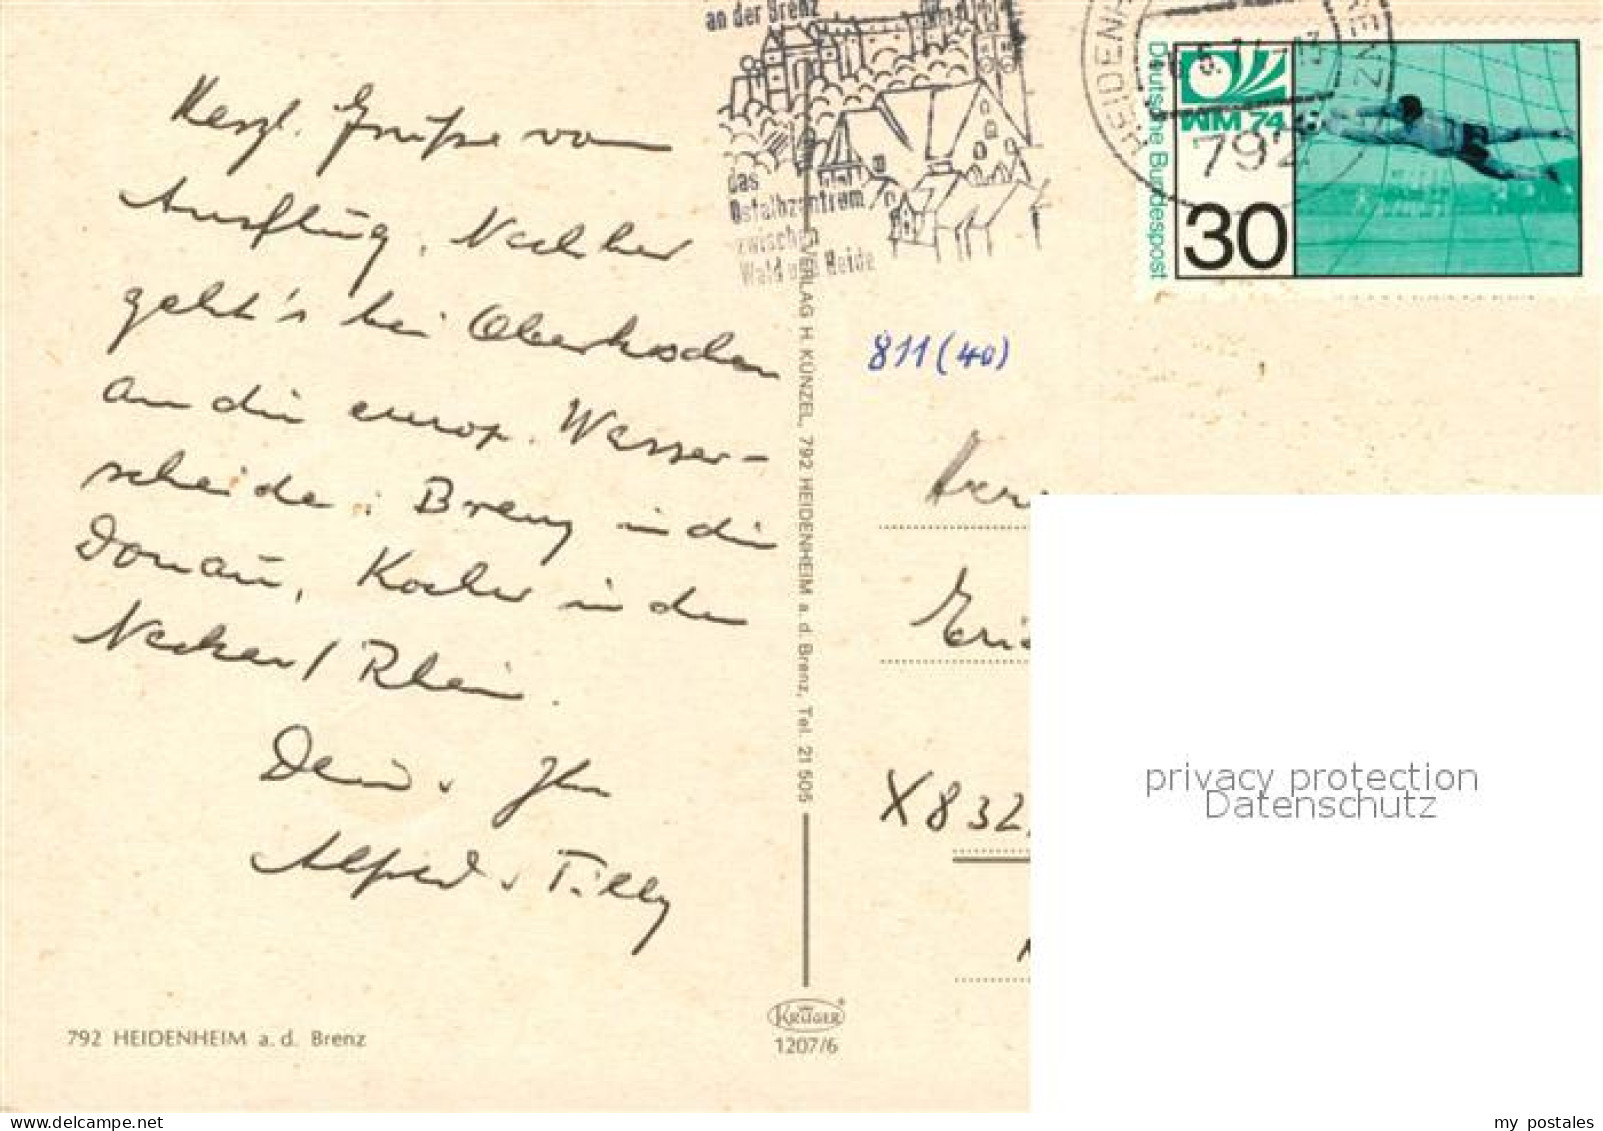 an der Brenz
das
Ostalbzentrum
zwischen
Wald und Heide
HEIDENH
BRENZ
792
Deutsche Bundespost
WM 74
30
Herzl. Grüße vom
Ausflug. Nachher
geht's bei Oberkochen
an die europ. Wasser-
scheide: Brenz in die
Donau, Kocher in den
Neckar/Rhein.
Dein u. Ihr
Alfred u Tilly
811 (40)
X832
VERLAG H. KÜNZEL, 792 HEIDENHEIM a. d. Brenz, Tel. 21 505
792 HEIDENHEIM a. d. Brenz
KRÜGER
1207/6
privacy protection
Datenschutz
my postales